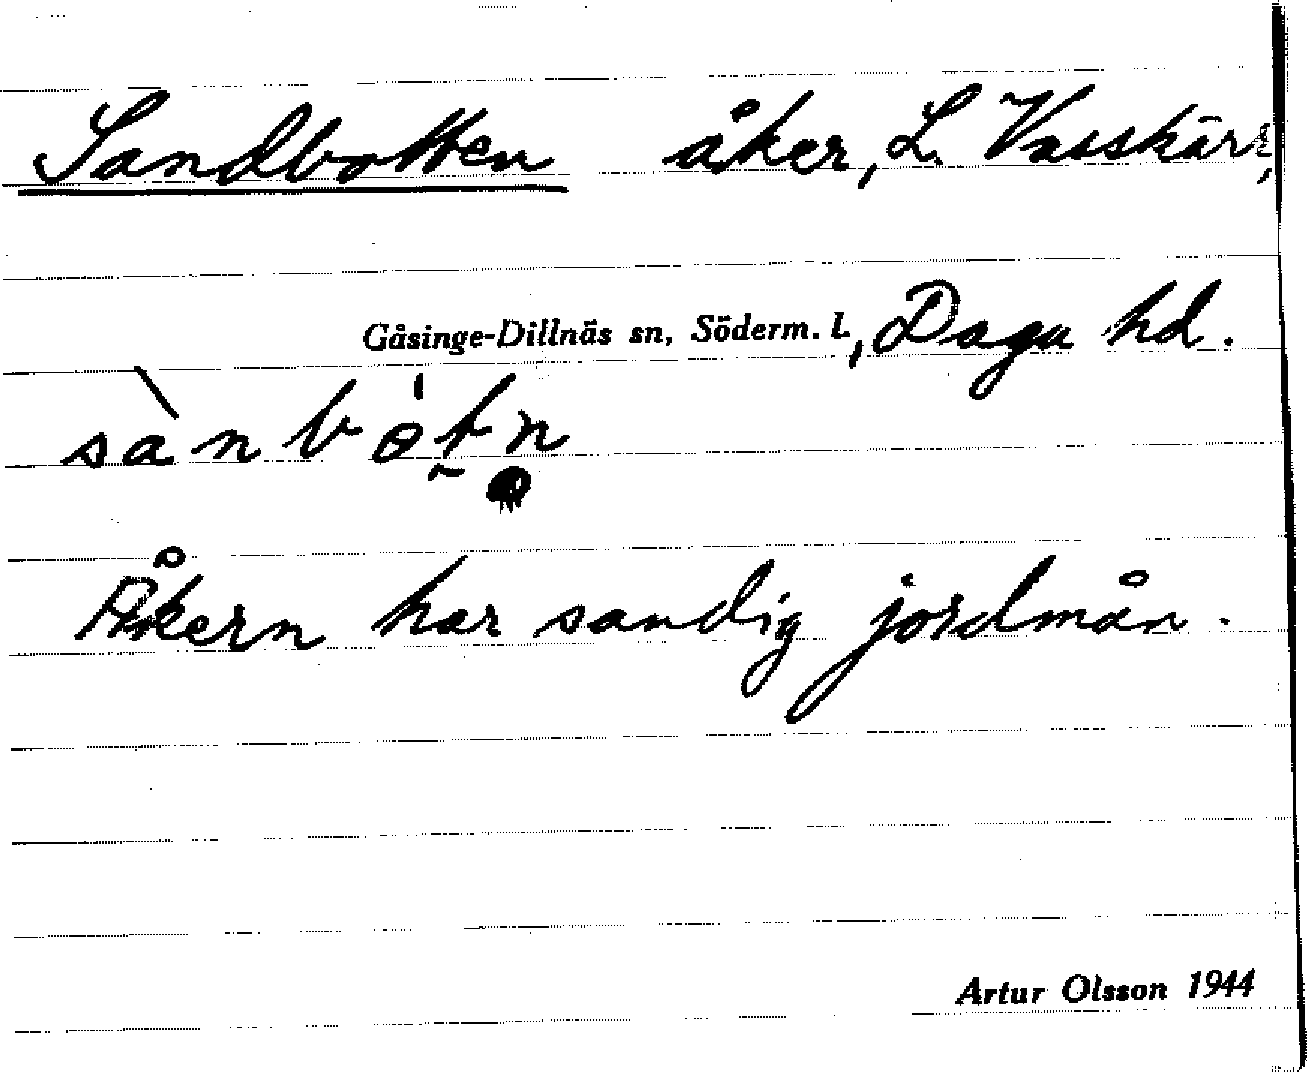 Sandbotten åker, L. Vasskärr,
Gåsinge-Dillnäs sn, Söderm. l., Daga hd.
sànbótn
Åkern har sandig jordmån.
Artur Olsson 1944